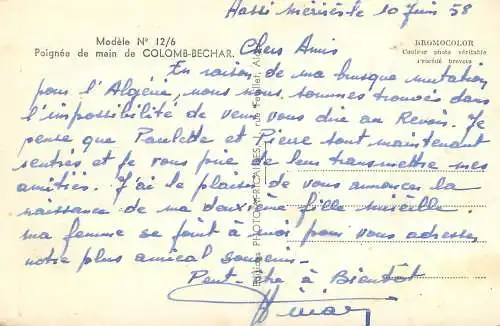 Hassi Mériès le 10 Juin 58
Modèle N° 12/6
Poignée de main de COLOMB-BECHAR.
BROMOCOLOR
Couleur photo véritable
Procédé breveté
Chers Amis
En raison de ma brusque mutation
pour l'Algérie, nous nous sommes trouvés dans
l'impossibilité de venir vous dire au Revoir. Je
pense que Paulette et Pierre sont maintenant
rentrés et je vous prie de leur transmettre mes
amitiés. J'ai le plaisir de vous annoncer la
naissance de ma deuxième fille Mireille.
ma femme se joint à moi pour vous adresser
notre plus amical souvenir.
Peut-être à Bientôt
Editions PHOTO-AFRICAINES, Rue Feuillet, Al